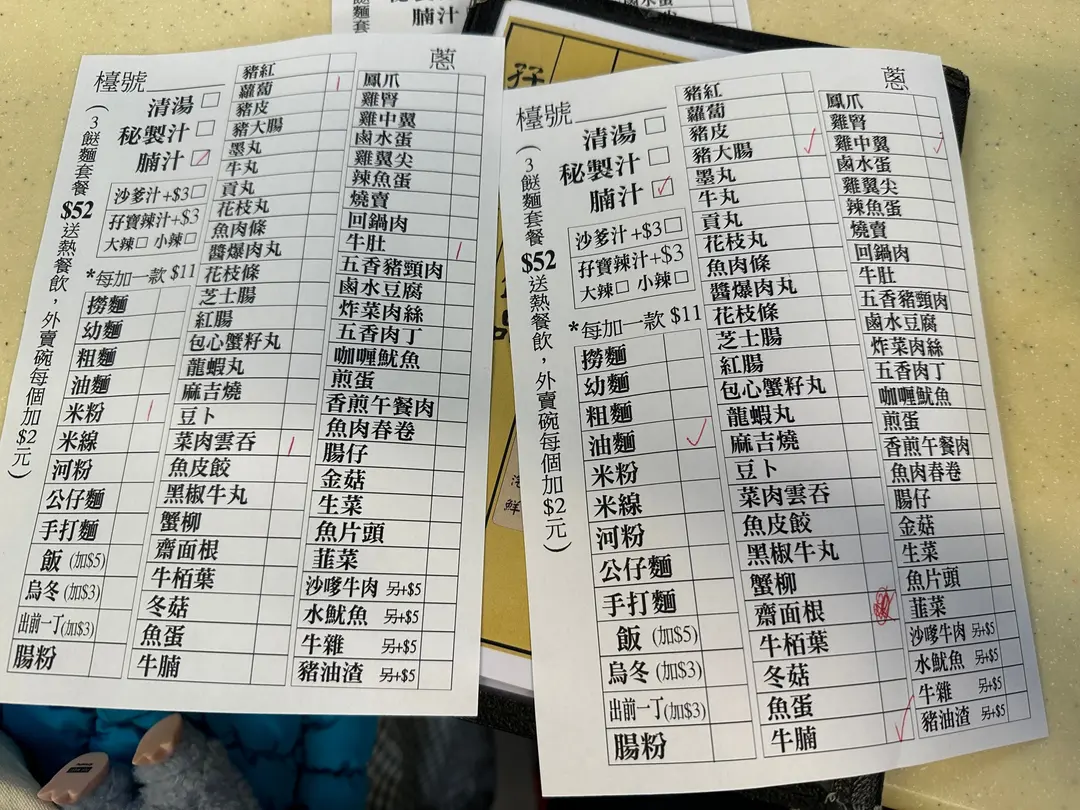 腩汁
檯號
清湯
秘製汁
腩汁
沙爹汁+$3
孖寶辣汁+$3
大辣 小辣
(3餸麵套餐$52送熱餐飲，外賣碗每個加$2元)
*每加一款 $11
撈麵
幼麵
粗麵
油麵
米粉
米線
河粉
公仔麵
手打麵
飯 (加$5)
烏冬 (加$3)
出前一丁(加$3)
腸粉
豬紅
蘿蔔
豬皮
豬大腸
墨丸
牛丸
貢丸
花枝丸
魚肉條
醬爆肉丸
花枝條
芝士腸
紅腸
包心蟹籽丸
龍蝦丸
麻吉燒
豆卜
菜肉雲吞
魚皮餃
黑椒牛丸
蟹柳
齋面根
牛栢葉
冬菇
魚蛋
牛腩
蔥
鳳爪
雞腎
雞中翼
鹵水蛋
雞翼尖
辣魚蛋
燒賣
回鍋肉
牛肚
五香豬頸肉
鹵水豆腐
炸菜肉絲
五香肉丁
咖喱魷魚
煎蛋
香煎午餐肉
魚肉春卷
腸仔
金菇
生菜
魚片頭
韮菜
沙嗲牛肉 另+$5
水魷魚 另+$5
牛雜 另+$5
豬油渣 另+$5
檯號
清湯
秘製汁
腩汁
沙爹汁+$3
孖寶辣汁+$3
大辣 小辣
(3餸麵套餐$52送熱餐飲，外賣碗每個加$2元)
*每加一款 $11
撈麵
幼麵
粗麵
油麵
米粉
米線
河粉
公仔麵
手打麵
飯 (加$5)
烏冬 (加$3)
出前一丁(加$3)
腸粉
豬紅
蘿蔔
豬皮
豬大腸
墨丸
牛丸
貢丸
花枝丸
魚肉條
醬爆肉丸
花枝條
芝士腸
紅腸
包心蟹籽丸
龍蝦丸
麻吉燒
豆卜
菜肉雲吞
魚皮餃
黑椒牛丸
蟹柳
齋面根
牛栢葉
冬菇
魚蛋
牛腩
蔥
鳳爪
雞腎
雞中翼
鹵水蛋
雞翼尖
辣魚蛋
燒賣
回鍋肉
牛肚
五香豬頸肉
鹵水豆腐
炸菜肉絲
五香肉丁
咖喱魷魚
煎蛋
香煎午餐肉
魚肉春卷
腸仔
金菇
生菜
魚片頭
韮菜
沙嗲牛肉 另+$5
水魷魚 另+$5
牛雜 另+$5
豬油渣 另+$5